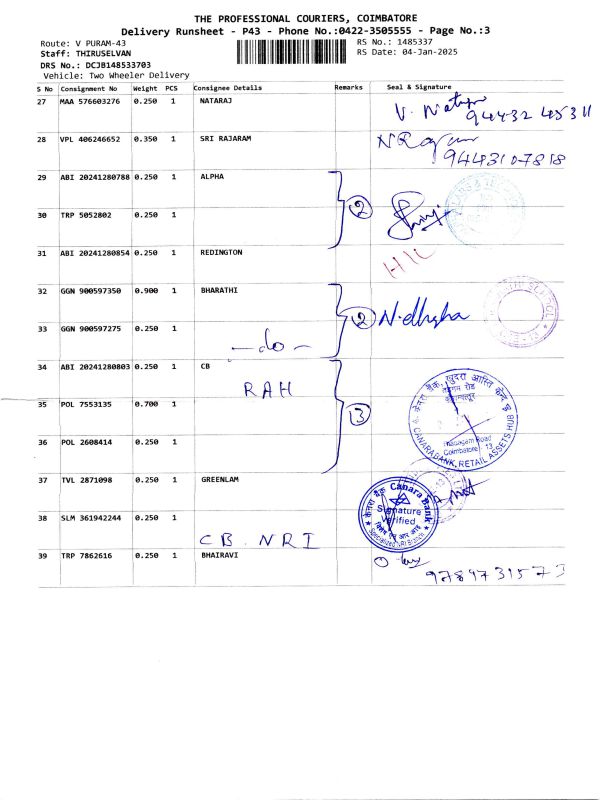 THE PROFESSIONAL COURIERS, COIMBATORE
Delivery Runsheet - P43 - Phone No.:0422-3505555 - Page No.:3
Route: V PURAM-43 RS No.: 1485337
Staff: THIRUSELVAN RS Date: 04-Jan-2025
DRS No.: DCJB148533703
Vehicle: Two Wheeler Delivery
S No Consignment No Weight PCS Consignee Details Remarks Seal & Signature
27 MAA 576603276 0.250 1 NATARAJ
94432 45311
28 VPL 406246652 0.350 1 SRI RAJARAM
9443107818
29 ABI 20241280788 0.250 1 ALPHA
2
30 TRP 5052802 0.250 1
31 ABI 20241280854 0.250 1 REDINGTON
32 GGN 900597350 0.900 1 BHARATHI
2
33 GGN 900597275 0.250 1
-do-
34 ABI 20241280803 0.250 1 CB
RAH
35 POL 7553135 0.700 1
3
36 POL 2608414 0.250 1
Coimbatore 13
CANARA BANK, RETAIL ASSETS HUB
37 TVL 2871098 0.250 1 GREENLAM
केनरा बैंक Canara Bank
Signature
Verified
38 SLM 361942244 0.250 1
CB. NRI
39 TRP 7862616 0.250 1 BHAIRAVI